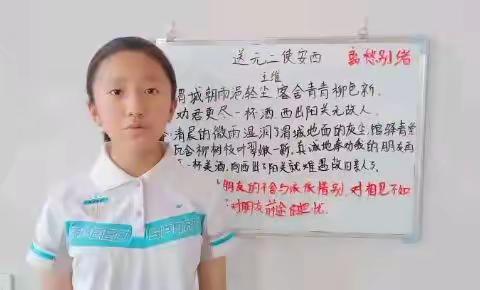 送元二使安西 离愁别绪
王维
渭城朝雨浥轻尘,客舍青青柳色新.
劝君更尽一杯酒,西出阳关无故人.
清晨的微雨湿润了渭城地面的灰尘,馆驿青堂
瓦舍柳树枝叶翠嫩一新,真诚地奉劝我的朋友再
一杯美酒,向西出了阳关就难遇故旧亲人了.
朋友的不舍与浓依惜别,对相见不如
对朋友前途的担忧.